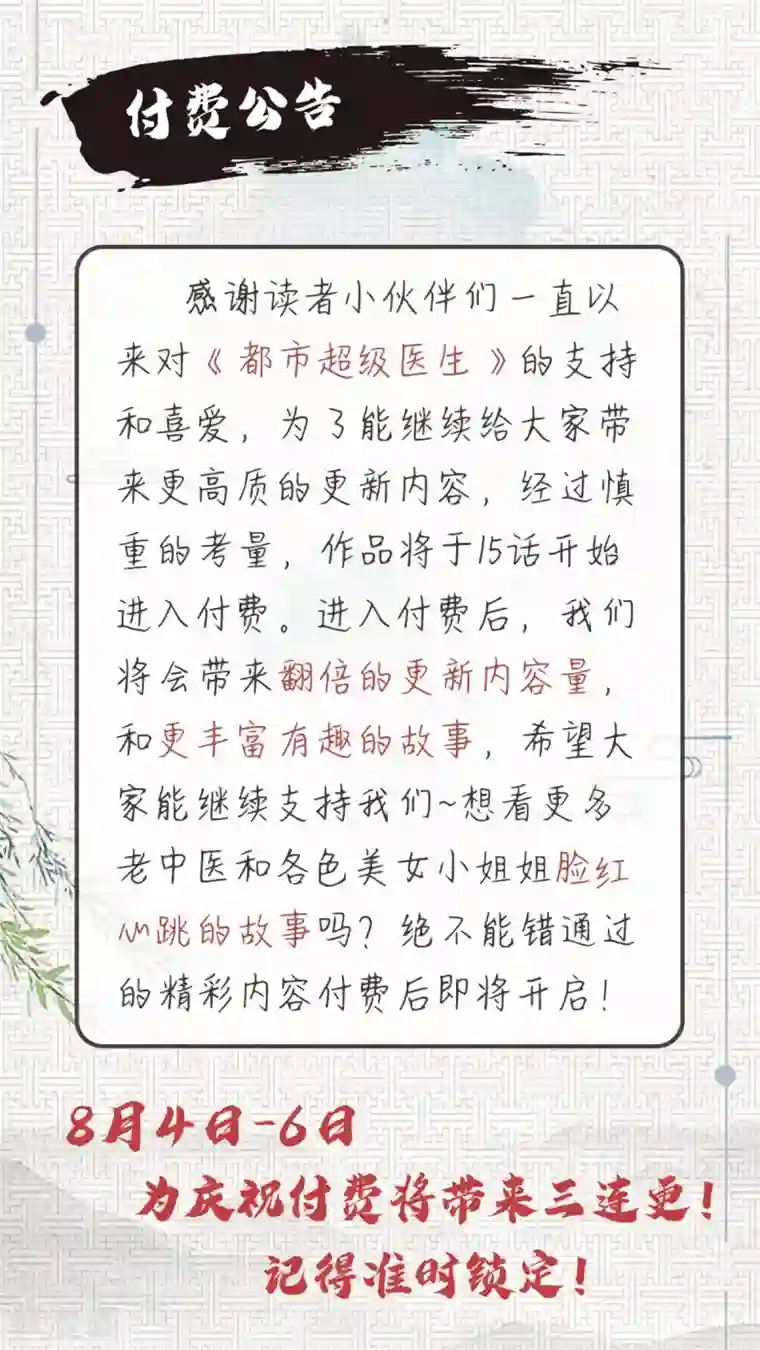 付费公告
感谢读者小伙伴们一直以
来对《都市超级医生》的支持
和喜爱，为了能继续给大家带
来更高质的更新内容，经过慎
重的考量，作品将于15话开始
进入付费。进入付费后，我们
将会带来翻倍的更新内容量，
和更丰富有趣的故事，希望大
家能继续支持我们~想看更多
老中医和各色美女小姐姐脸红
心跳的故事吗？绝不能错通过
的精彩内容付费后即将开启！
8月4日-6日
为庆祝付费将带来三连更！
记得准时锁定！